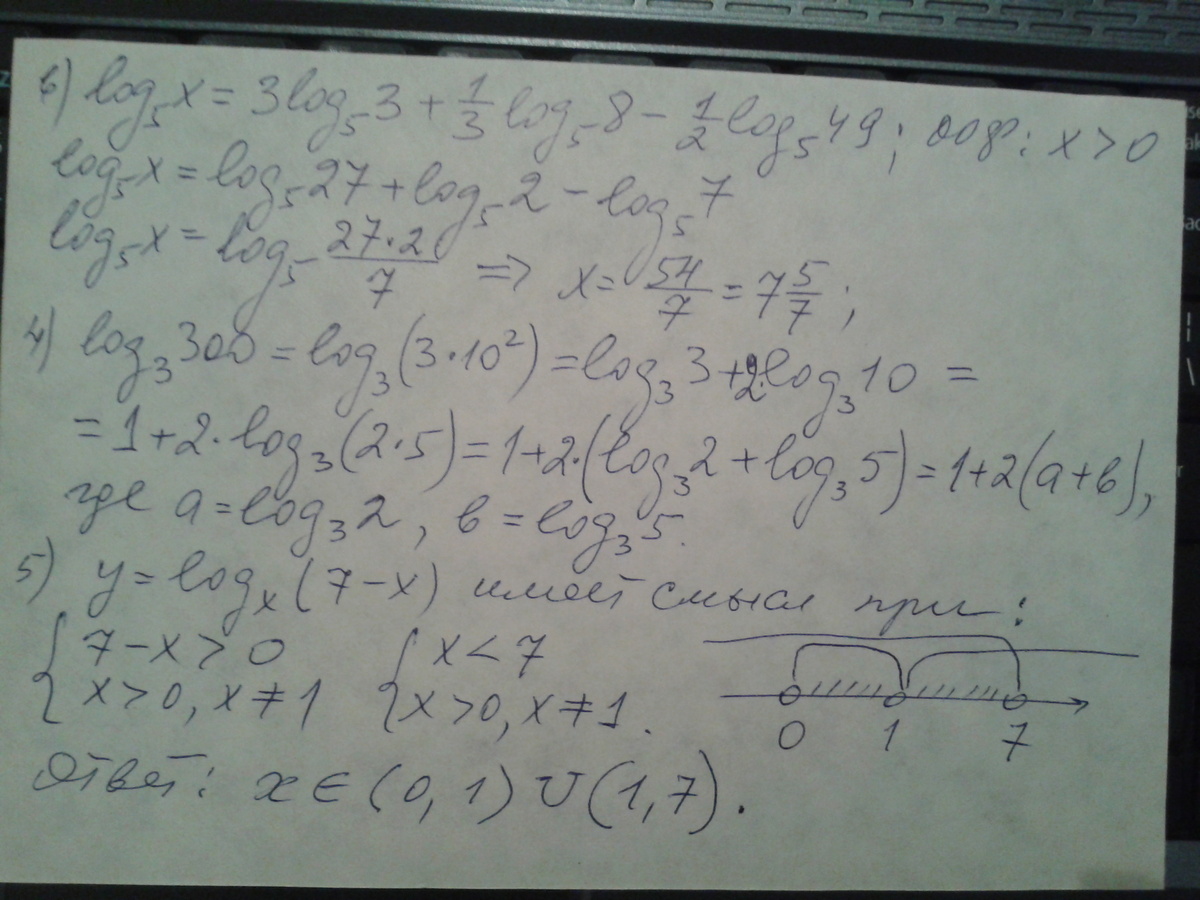 в) log₅x = 3log₅3 + 1/3 log₅8 − 1/2 log₅49; ООФ: x > 0
log₅x = log₅27 + log₅2 − log₅7
log₅x = log₅ 27·2/7 ⇒ x = 54/7 = 7 5/7;
4) log₃300 = log₃(3·10²) = log₃3 + 2log₃10 =
= 1 + 2·log₃(2·5) = 1 + 2·(log₃2 + log₃5) = 1 + 2(a + в),
где a = log₃2, в = log₃5.
5) y = logₓ(7 − x) имеет смысл при:
{ 7 − x > 0 { x < 7
x > 0, x ≠ 1 x > 0, x ≠ 1.
0 1 7
Ответ: x ∈ (0, 1) ∪ (1, 7).